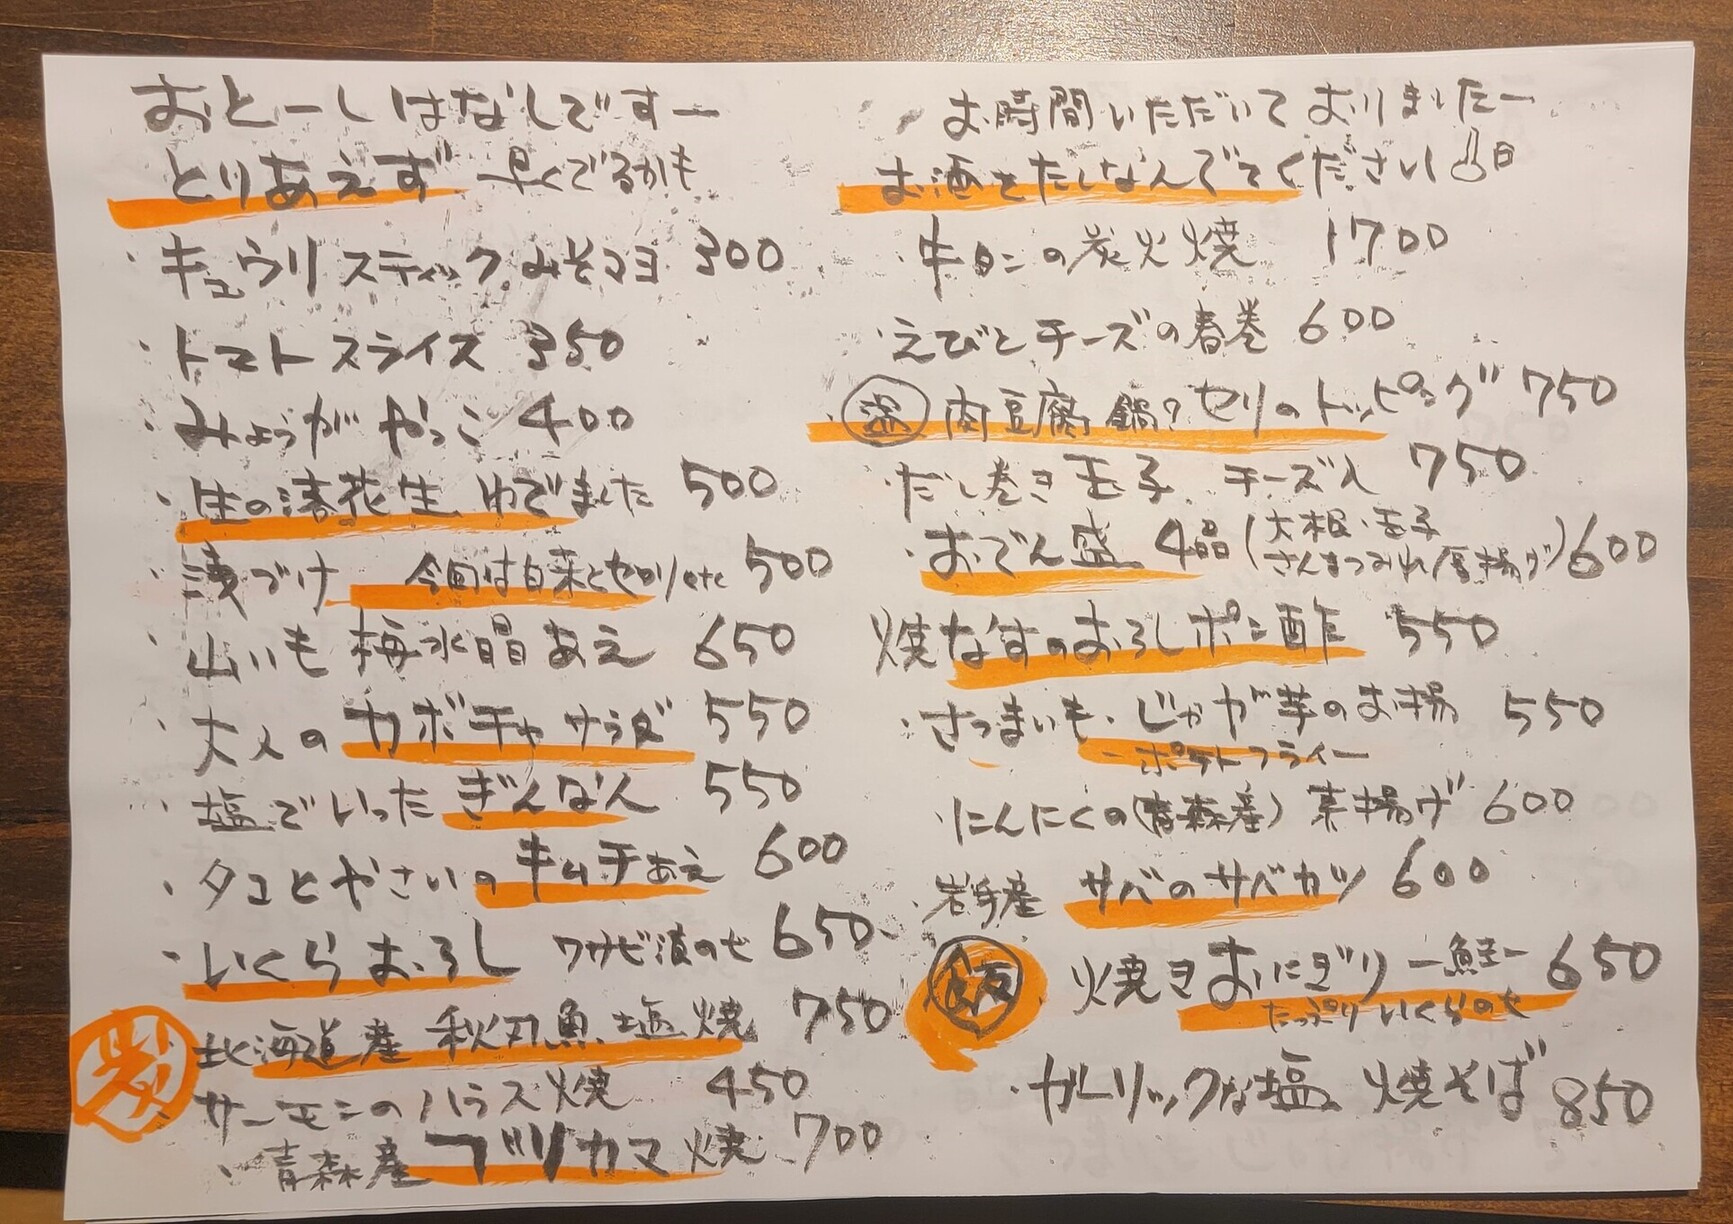 おとーしはなしですー
とりあえず 早くでるかも
・キュウリスティック みそマヨ 300
・トマトスライス 350
・みょうがやっこ 400
・生の落花生 ゆでました 500
・浅づけ 今回は白菜とセロリetc 500
・山いも梅水晶あえ 650
・大人のカボチャサラダ 550
・塩でいったぎんなん 550
・タコとやさいのキムチあえ 600
・いくらおろし ワサビ漬のせ 650
炭 北海道産 秋刀魚塩焼 750
サーモンのハラス焼 450
・青森産 ブリカマ焼 700
お時間いただいておりましたー
お酒をたしなんでてください
・牛タンの炭火焼 1700
・えびとチーズの春巻 600
肉豆腐鍋? セリのトッピング 750
・だし巻き玉子 チーズ入 750
・おでん盛 4品(大根・玉子
さんまつみれ厚揚げ) 600
焼なすのおろしポン酢 550
・さつまいも・じゃが芋のお揚 550
ーポテトフライー
・にんにくの(青森産) 素揚げ 600
・岩手産 サバのサバカツ 600
飯 焼きおにぎりー鮭ー 650
たっぷりいくらのせ
・ガーリックな塩焼そば 850